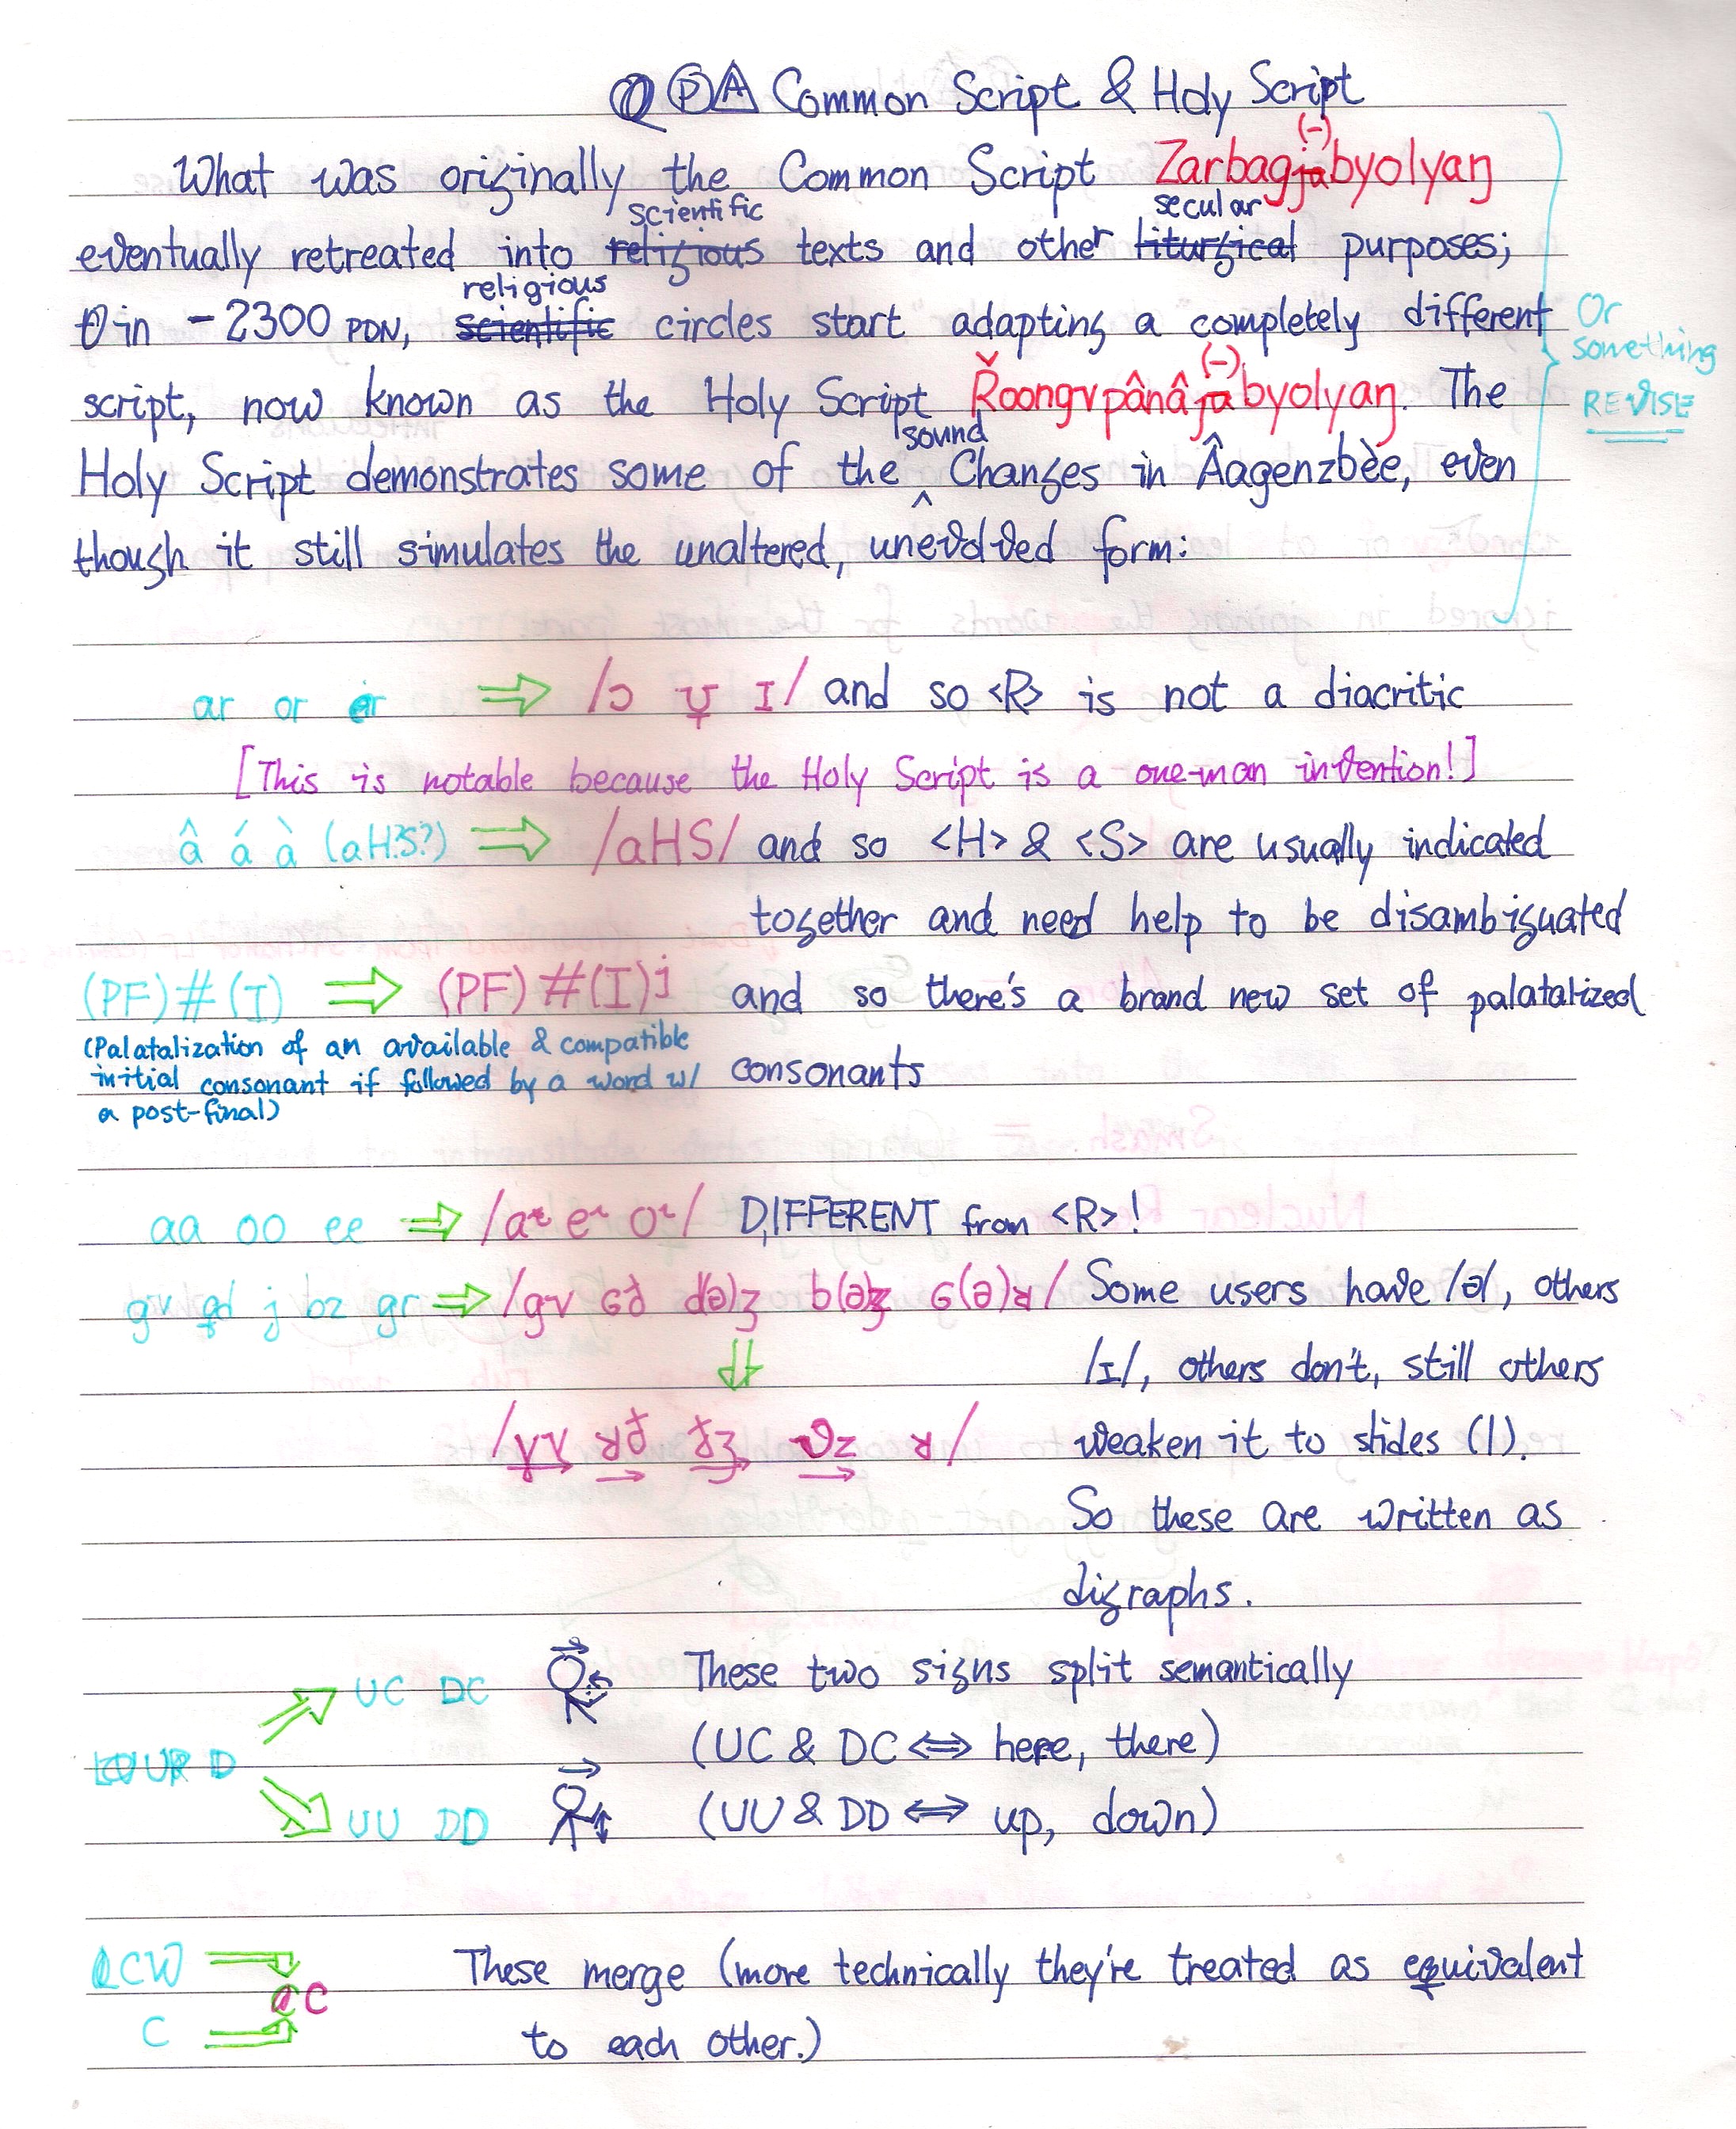 Q Ⓟ A Common Script & Holy Script
(-)
What was originally the Common Script Zarbagjabyolyaŋ
scientific secular
eventually retreated into religious texts and other liturgical purposes;
religious
in -2300 PDN, scientific circles start adapting a completely different
Or something REVISE
(-)
script, now known as the Holy Script Řoongvpânâjabyolyaŋ. The
sound
Holy Script demonstrates some of the ^ Changes in Âagenzbèe, even
though it still simulates the unaltered, unevolved form:
ar or er ⇒ /ɔ ɪ/ and so <R> is not a diacritic
[This is notable because the Holy Script is a one-man invention!]
â á à (aH?S?) ⇒ /aHS/ and so <H> & <S> are usually indicated
together and need help to be disambiguated
(PF)#(I) ⇒ (PF)#(I)ʲ and so there's a brand new set of palatalized
consonants
(Palatalization of an available & compatible
initial consonant if followed by a word w/
a post-final)
aa oo ee ⇒ /a e o/ DIFFERENT from <R>!
gv j bz gr ⇒ /gv d(ə)ʒ b(ə)ʒ ɢ(ə)ʁ/ Some users have /ə/, others
/ɪ/, others don't, still others
weaken it to slides (l).
So these are written as
digraphs.
UC DC These two signs split semantically
(UC & DC ⇔ here, there)
UU DD (UU & DD ⇔ up, down)
CW ⇒ C These merge (more technically they're treated as equivalent
C ⇒ to each other.)